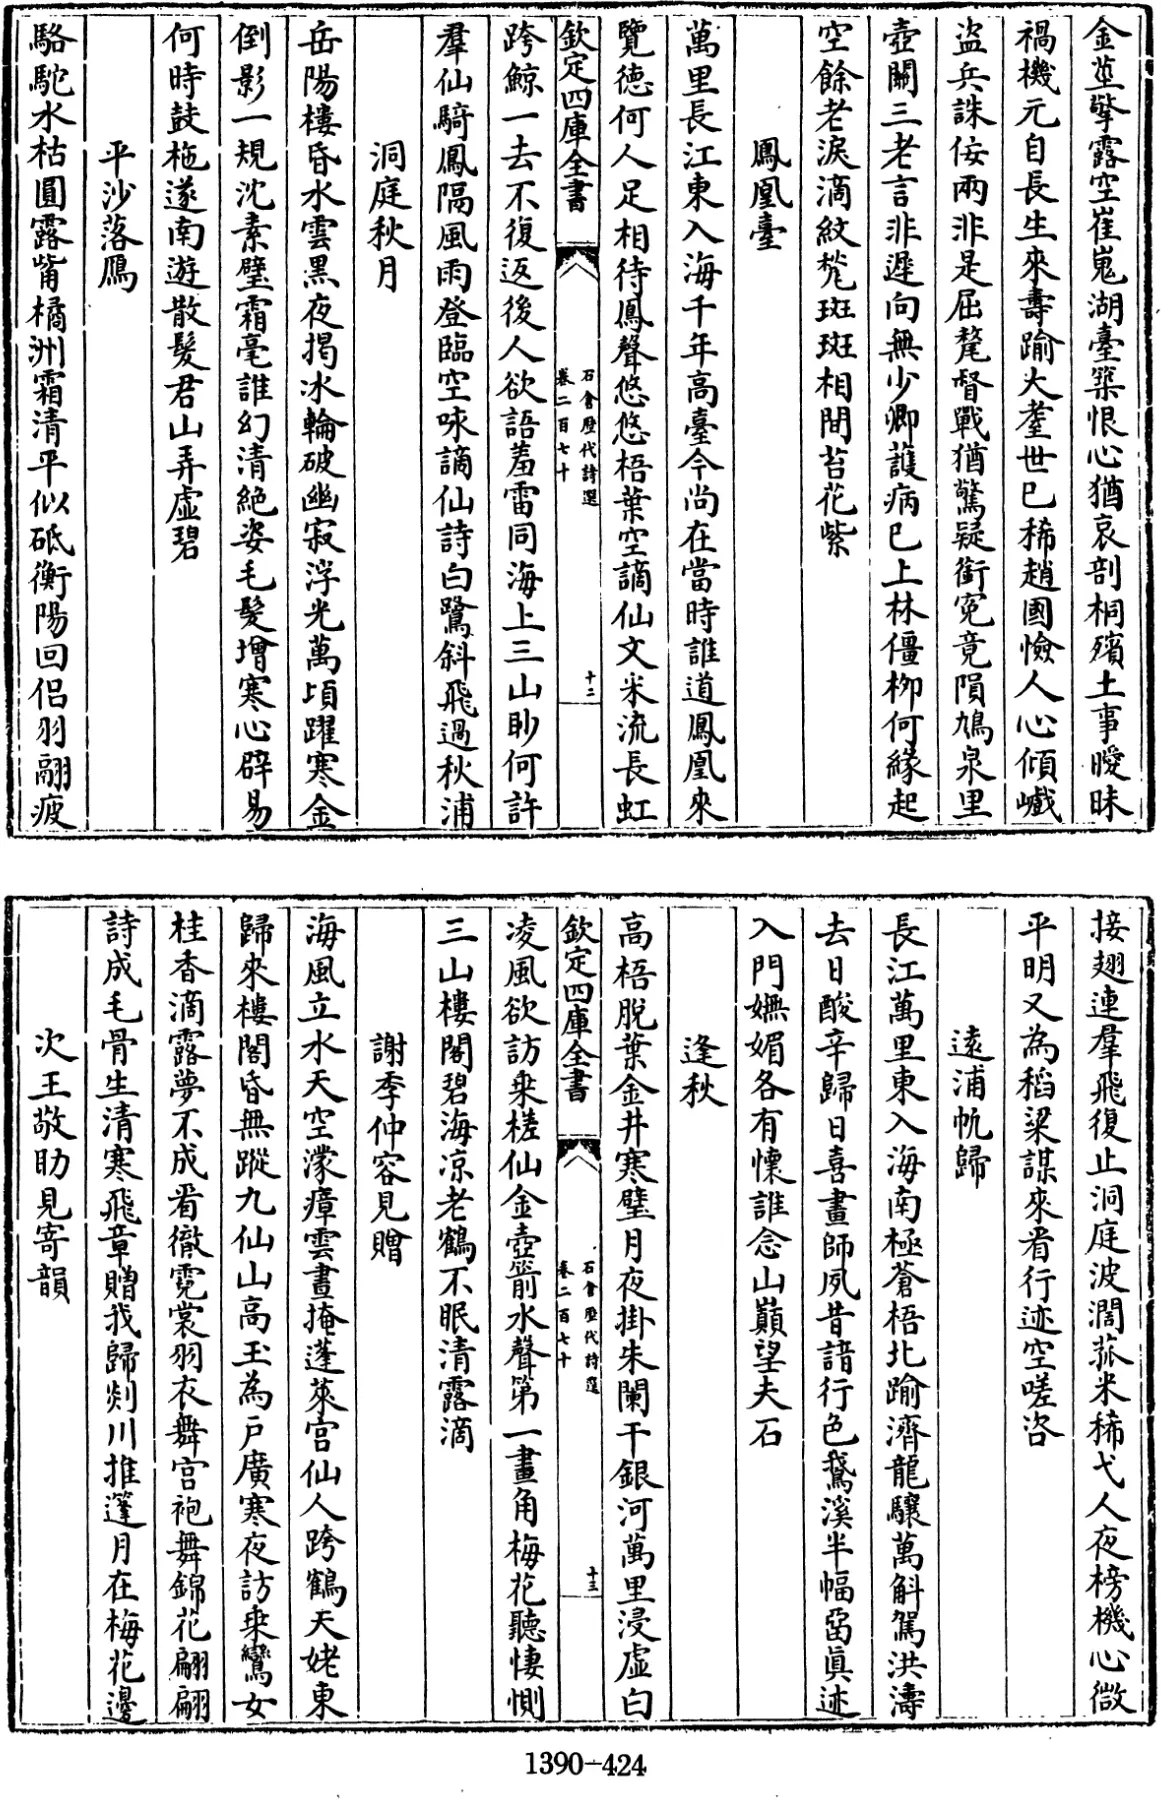 金莖擎露空崔嵬湖臺築恨心猶哀剖桐殯土事曖昧
禍機元自長生來壽踰大耋世已稀趙國憸人心傾巇
盜兵誅佞兩非是屈氂督戰猶驚疑銜寃竟隕鳩泉里
壺關三老言非遲向無少卿護病已上林僵柳何緣起
空餘老淚滴紋斑斑相間苔花紫
鳳凰臺
萬里長江東入海千年高臺今尚在當時誰道鳳凰來
覽德何人足相待鳳聲悠悠梧葉空謫仙文米流長虹
欽定四庫全書
石倉歷代詩選
卷二百七十
十二
跨鯨一去不復返後人欲語羞雷同海上三山眇何許
羣仙騎鳳隔風雨登臨空咏謫仙詩白鷺斜飛過秋浦
洞庭秋月
岳陽樓昏水雲黑夜揭冰輪破幽寂浮光萬頃躍寒金
倒影一規沈素璧霜毫誰幻清絶姿毛髮增寒心辟易
何時鼓枻遂南遊散髮君山弄虛碧
平沙落鴈
駱駝水枯圓露觜橘洲霜清平似砥衡陽回侣羽翮疲
接翅連羣飛復止洞庭波濶菰米稀弋人夜榜機心微
平明又為稻粱謀來看行迹空嗟咨
遠浦帆歸
長江萬里東入海南極蒼梧北踰濟龍驤萬斛駕洪濤
去日酸辛歸日喜畫師夙昔諳行色鵞溪半幅留真迹
入門嫵媚各有懷誰念山巔望夫石
逢秋
高梧脫葉金井寒璧月夜掛朱闌干銀河萬里浸虛白
欽定四庫全書
石倉歷代詩選
卷二百七十
十三
凌風欲訪乘槎仙金壺箭水聲第一畫角梅花聽悽惻
三山樓閣碧海凉老鶴不眠清露滴
謝季仲容見贈
海風立水天空濛瘴雲晝掩蓬萊宮仙人跨鶴天姥東
歸來樓閣昏無蹤九仙山高玉為戶廣寒夜訪乘鸞女
桂香滴露夢不成看徹霓裳羽衣舞宮袍舞錦花翩翩
詩成毛骨生清寒飛章贈我歸剡川推篷月在梅花邊
次王敬助見寄韻
1390-424